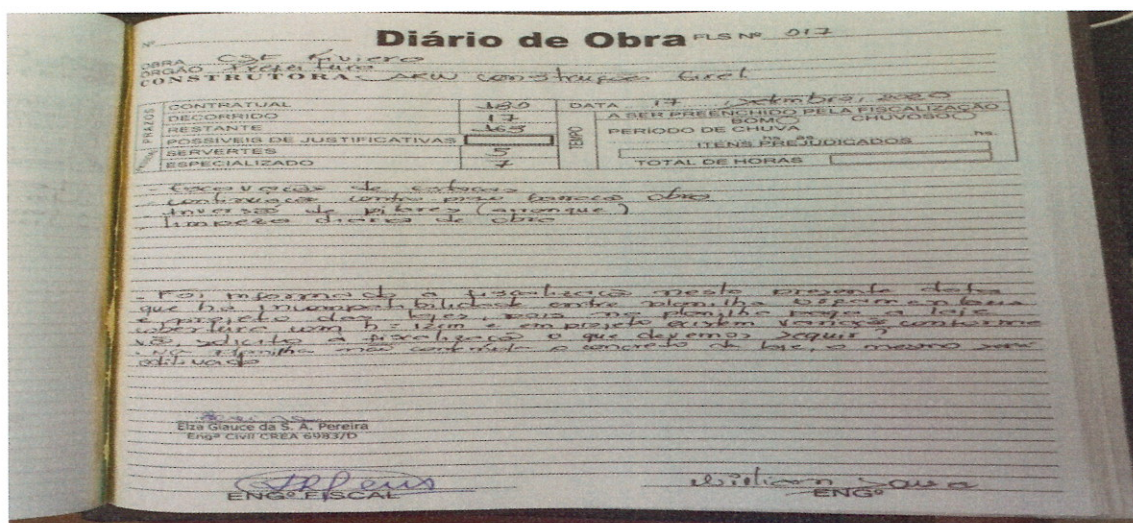 Nº
Diário de Obra FLS Nº 017
OBRA CSE Riviera
ÓRGÃO Prefeitura
CONSTRUTORA AKW Construções Eireli
PRAZOS
CONTRATUAL 180
DECORRIDO 17
RESTANTE 163
POSSÍVEIS DE JUSTIFICATIVAS
SERVENTES 5
ESPECIALIZADO 7
DATA 17 setembro, 2020
TEMPO
A SER PREENCHIDO PELA FISCALIZAÇÃO
BOM CHUVOSO
PERÍODO DE CHUVA
hs às hs
ITENS PREJUDICADOS
TOTAL DE HORAS
- Escavação de estacas
- continuação contra piso barraco obra
- Inversão de pilares (arranque)
- limpeza diária de obra
- Foi informado à fiscalização nesta presente data
que há incompatibilidade entre planilha orçamentária
e projeto das lajes, pois na planilha paga a laje
cobertura com h = 12cm e em projeto existem conforme
vão, solicito a fiscalização o que devemos seguir?
- Na planilha não contempla o concreto da laje, o mesmo será
aditivado
Elza Glauce da S. A. Pereira
Engª Civil CREA 6983/D
ENGº FISCAL
ENGº